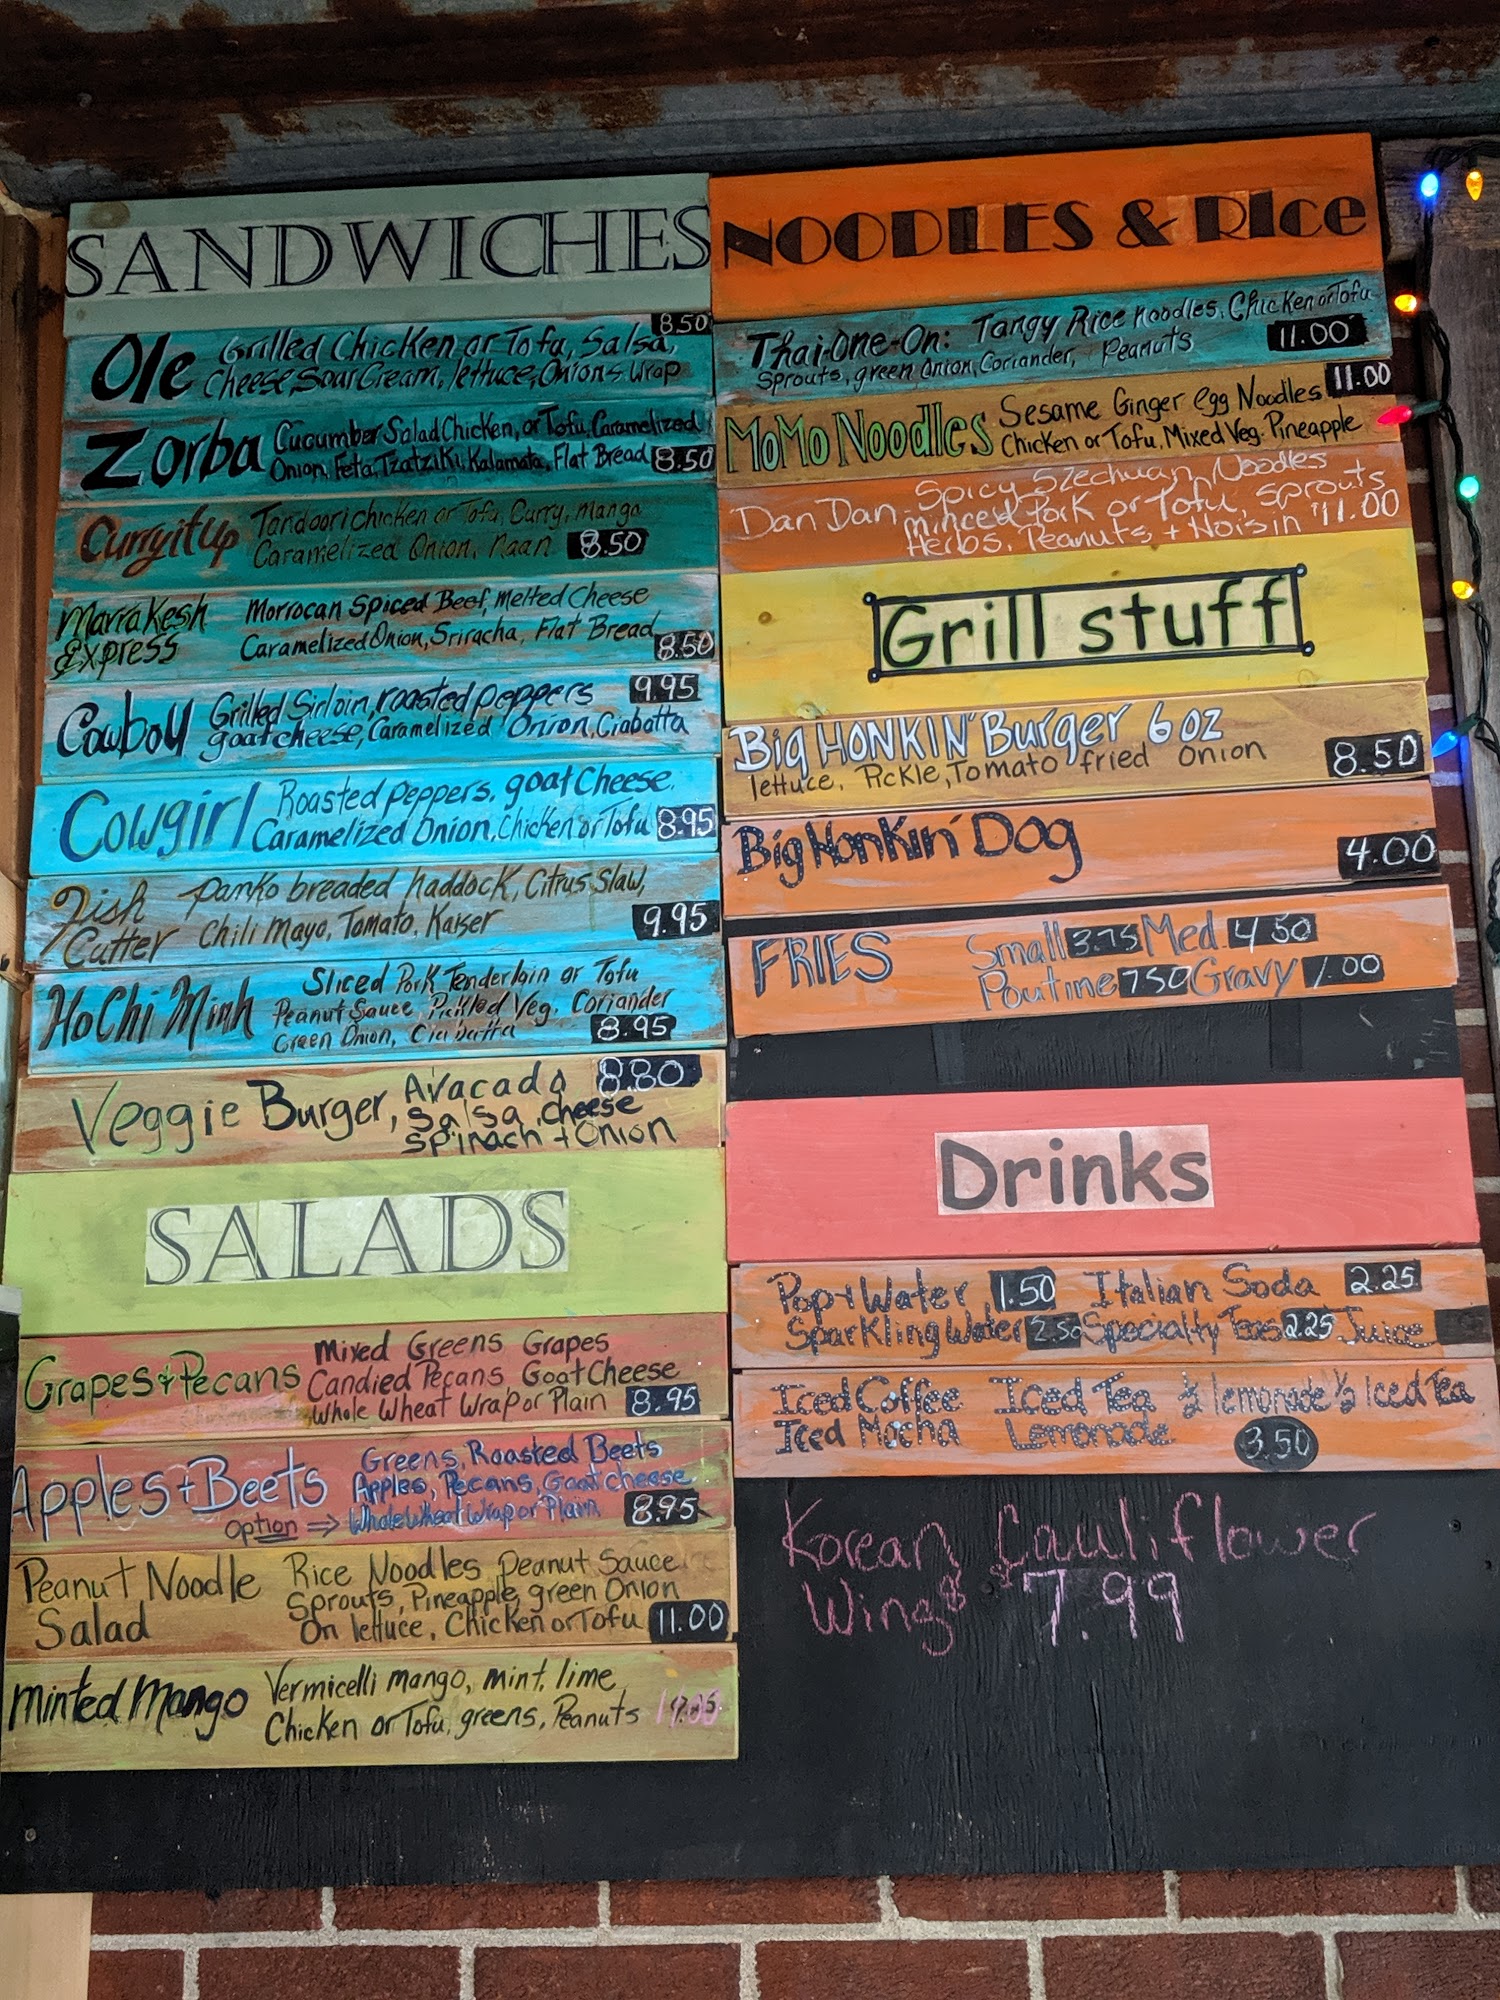 SANDWICHES
Ole Grilled Chicken or Tofu, Salsa, 8.50
Cheese, Sour Cream, lettuce, Onions Wrap
Zorba Cucumber Salad Chicken, or Tofu, Caramelized
Onion, Feta, Tzatziki, Kalamata, Flat Bread 8.50
Curry it up Tandoori chicken or Tofu, Curry, Mango
Caramelized Onion, Naan 8.50
MarraKesh Morrocan Spiced Beef, Melted Cheese
Express Caramelized Onion, Sriracha, Flat Bread 8.50
Cowboy Grilled Sirloin, roasted peppers 9.95
goat cheese, Caramelized Onion, Ciabatta
Cowgirl Roasted Peppers, goat Cheese,
Caramelized Onion, Chicken or Tofu 8.95
Fish Panko breaded haddock, Citrus Slaw,
Cutter Chili Mayo, Tomato, Kaiser 9.95
Ho Chi Minh Sliced Pork Tenderloin or Tofu
Peanut Sauce, Pickled Veg. Coriander
Green Onion, Ciabatta 8.95
Veggie Burger, Avacado 8.80
Salsa, cheese
Spinach + Onion
SALADS
Grapes & Pecans Mixed Greens Grapes
Candied Pecans Goat Cheese
Whole Wheat Wrap or Plain 8.95
Apples + Beets Greens, Roasted Beets
Apples, Pecans, Goat cheese
Option ⇒ Whole Wheat Wrap or Plain 8.95
Peanut Noodle Rice Noodles Peanut Sauce
Salad Sprouts, Pineapple, green Onion
On lettuce, Chicken or Tofu 11.00
Minted Mango Vermicelli mango, mint, lime,
Chicken or Tofu, greens, Peanuts
NOODLES & RIce
Thai-One-On: Tangy Rice Noodles, Chicken or Tofu
Sprouts, green Onion, Coriander, Peanuts 11.00
MoMo Noodles Sesame Ginger egg Noodles 11.00
Chicken or Tofu, Mixed Veg. Pineapple
Dan Dan - Spicy Szechuan Noodles
minced Pork or Tofu, Sprouts
Herbs, Peanuts, + Hoisin 11.00
Grill stuff
Big HONKIN' Burger 6 oz
lettuce, Pickle, Tomato fried Onion 8.50
Big Honkin' Dog 4.00
FRIES Small 3.75 Med. 4.50
Poutine 7.50 Gravy 1.00
Drinks
Pop + Water 1.50 Italian Soda 2.25
Sparkling Water 2.50 Specialty Teas 2.25 Juice
Iced Coffee Iced Tea ½ lemonade ½ Iced Tea
Iced Mocha Lemonade 3.50
Korean Cauliflower
Wings 7.99